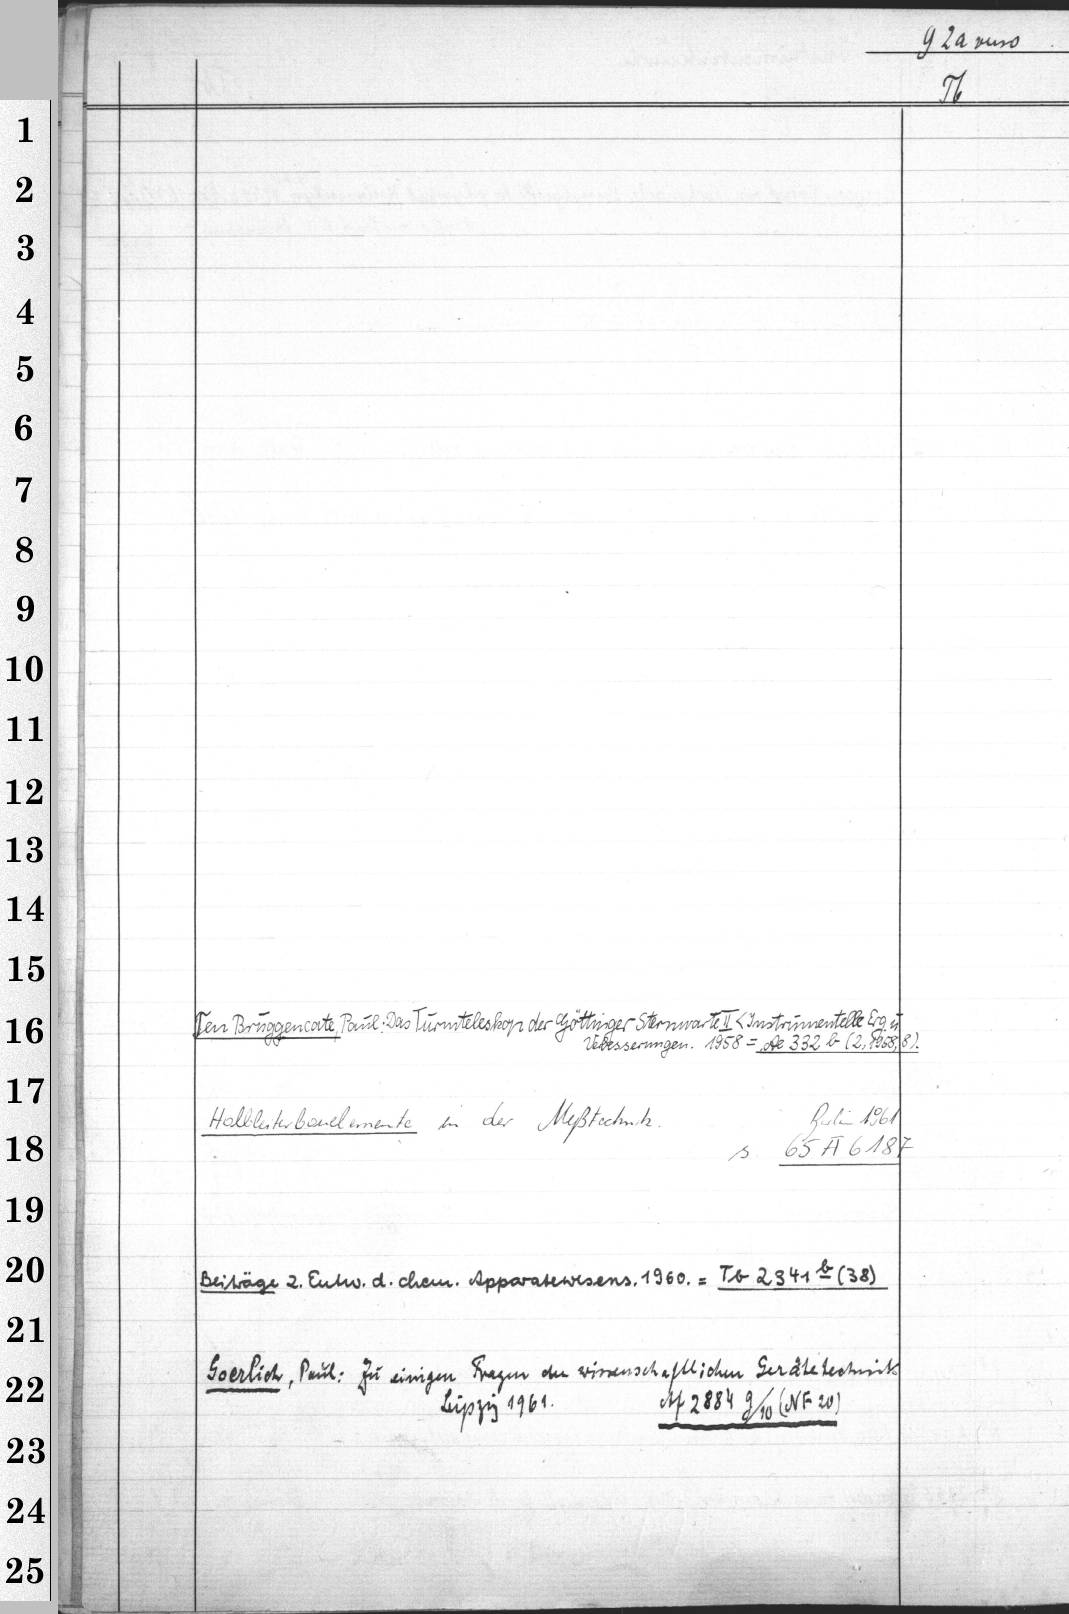 g 2a verso
Tb
1
2
3
4
5
6
7
8
9
10
11
12
13
14
15
Ten Bruggencate, Paul: Das Turmteleskop der Göttinger Sternwarte II < Instrumentelle Erg. u
16
Verbesserungen. 1958 = Ae 332 b (2, 1958, 8).
17
Halbleiterbauelemente in der Meßtechnik. Berlin 1961
18
s. 65 A 6187
19
20
Beiträge z. Entw. d. chem. Apparatewesens. 1960. = Tb 2341 b (38)
21
Goerlich, Paul: Zu einigen Fragen der wissenschaftlichen Gerätetechnik
22
Leipzig 1961. Af 2884 g/10 (NF 20)
23
24
25